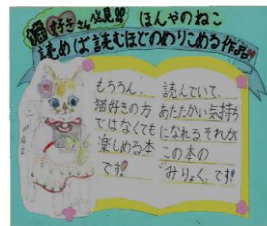 猫好きさん必見!! ほんやのねこ
読めば読むほどのめりこめる作品
もちろん、
猫好きの方
ではなくても
楽しめる本
です!
読んでいて、
あたたかい気持ち
になれるそれが
この本の
"みりょく"です!